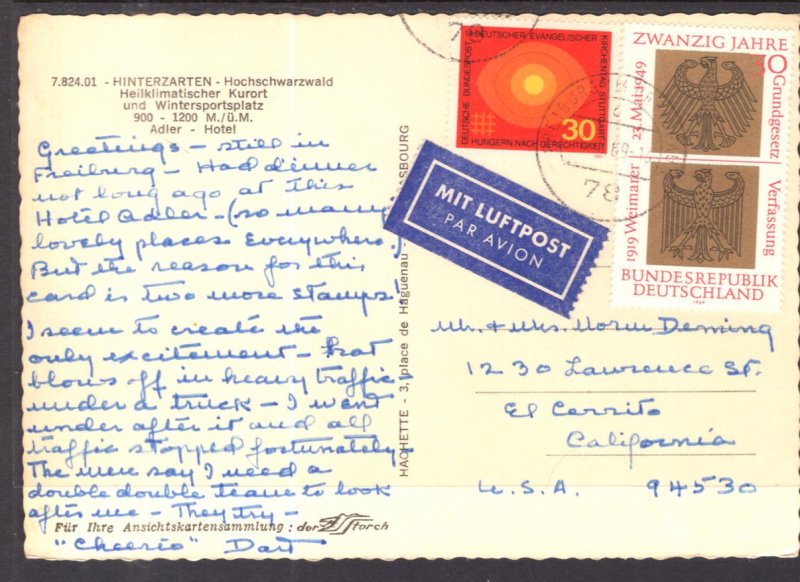 7.824.01 - HINTERZARTEN - Hochschwarzwald
Heilklimatischer Kurort
und Wintersportsplatz
900 - 1200 M./ü.M.
Adler - Hotel
Greetings - still in
Freiburg - Had dinner
not long ago at this
Hotel Adler - (so many
lovely places everywhere.)
But the reason for this
card is two more stamps!
I seem to create the
only excitement - hat
blows off in heavy traffic
under a truck - I went
under after it and all
traffic stopped fortunately.
The men say I need a
double double team to look
after me - They try -
Für Ihre Ansichtskartensammlung : der Storch
"Cheerio" Dart
HACHETTE - 3, place de Haguenau - STRASBOURG
14. DEUTSCHER EVANGELISCHER
KIRCHENTAG STUTTGART
DEUTSCHE BUNDESPOST
30
HUNGERN NACH GERECHTIGKEIT
78
78
MIT LUFTPOST
PAR AVION
ZWANZIG JAHRE
30
23. Mai 1949
Grundgesetz
1919 Weimarer
Verfassung
BUNDESREPUBLIK
DEUTSCHLAND
1969
Mr. & Mrs. Norm Deming
1230 Lawrence St.
El Cerrito
California
U.S.A. 94530